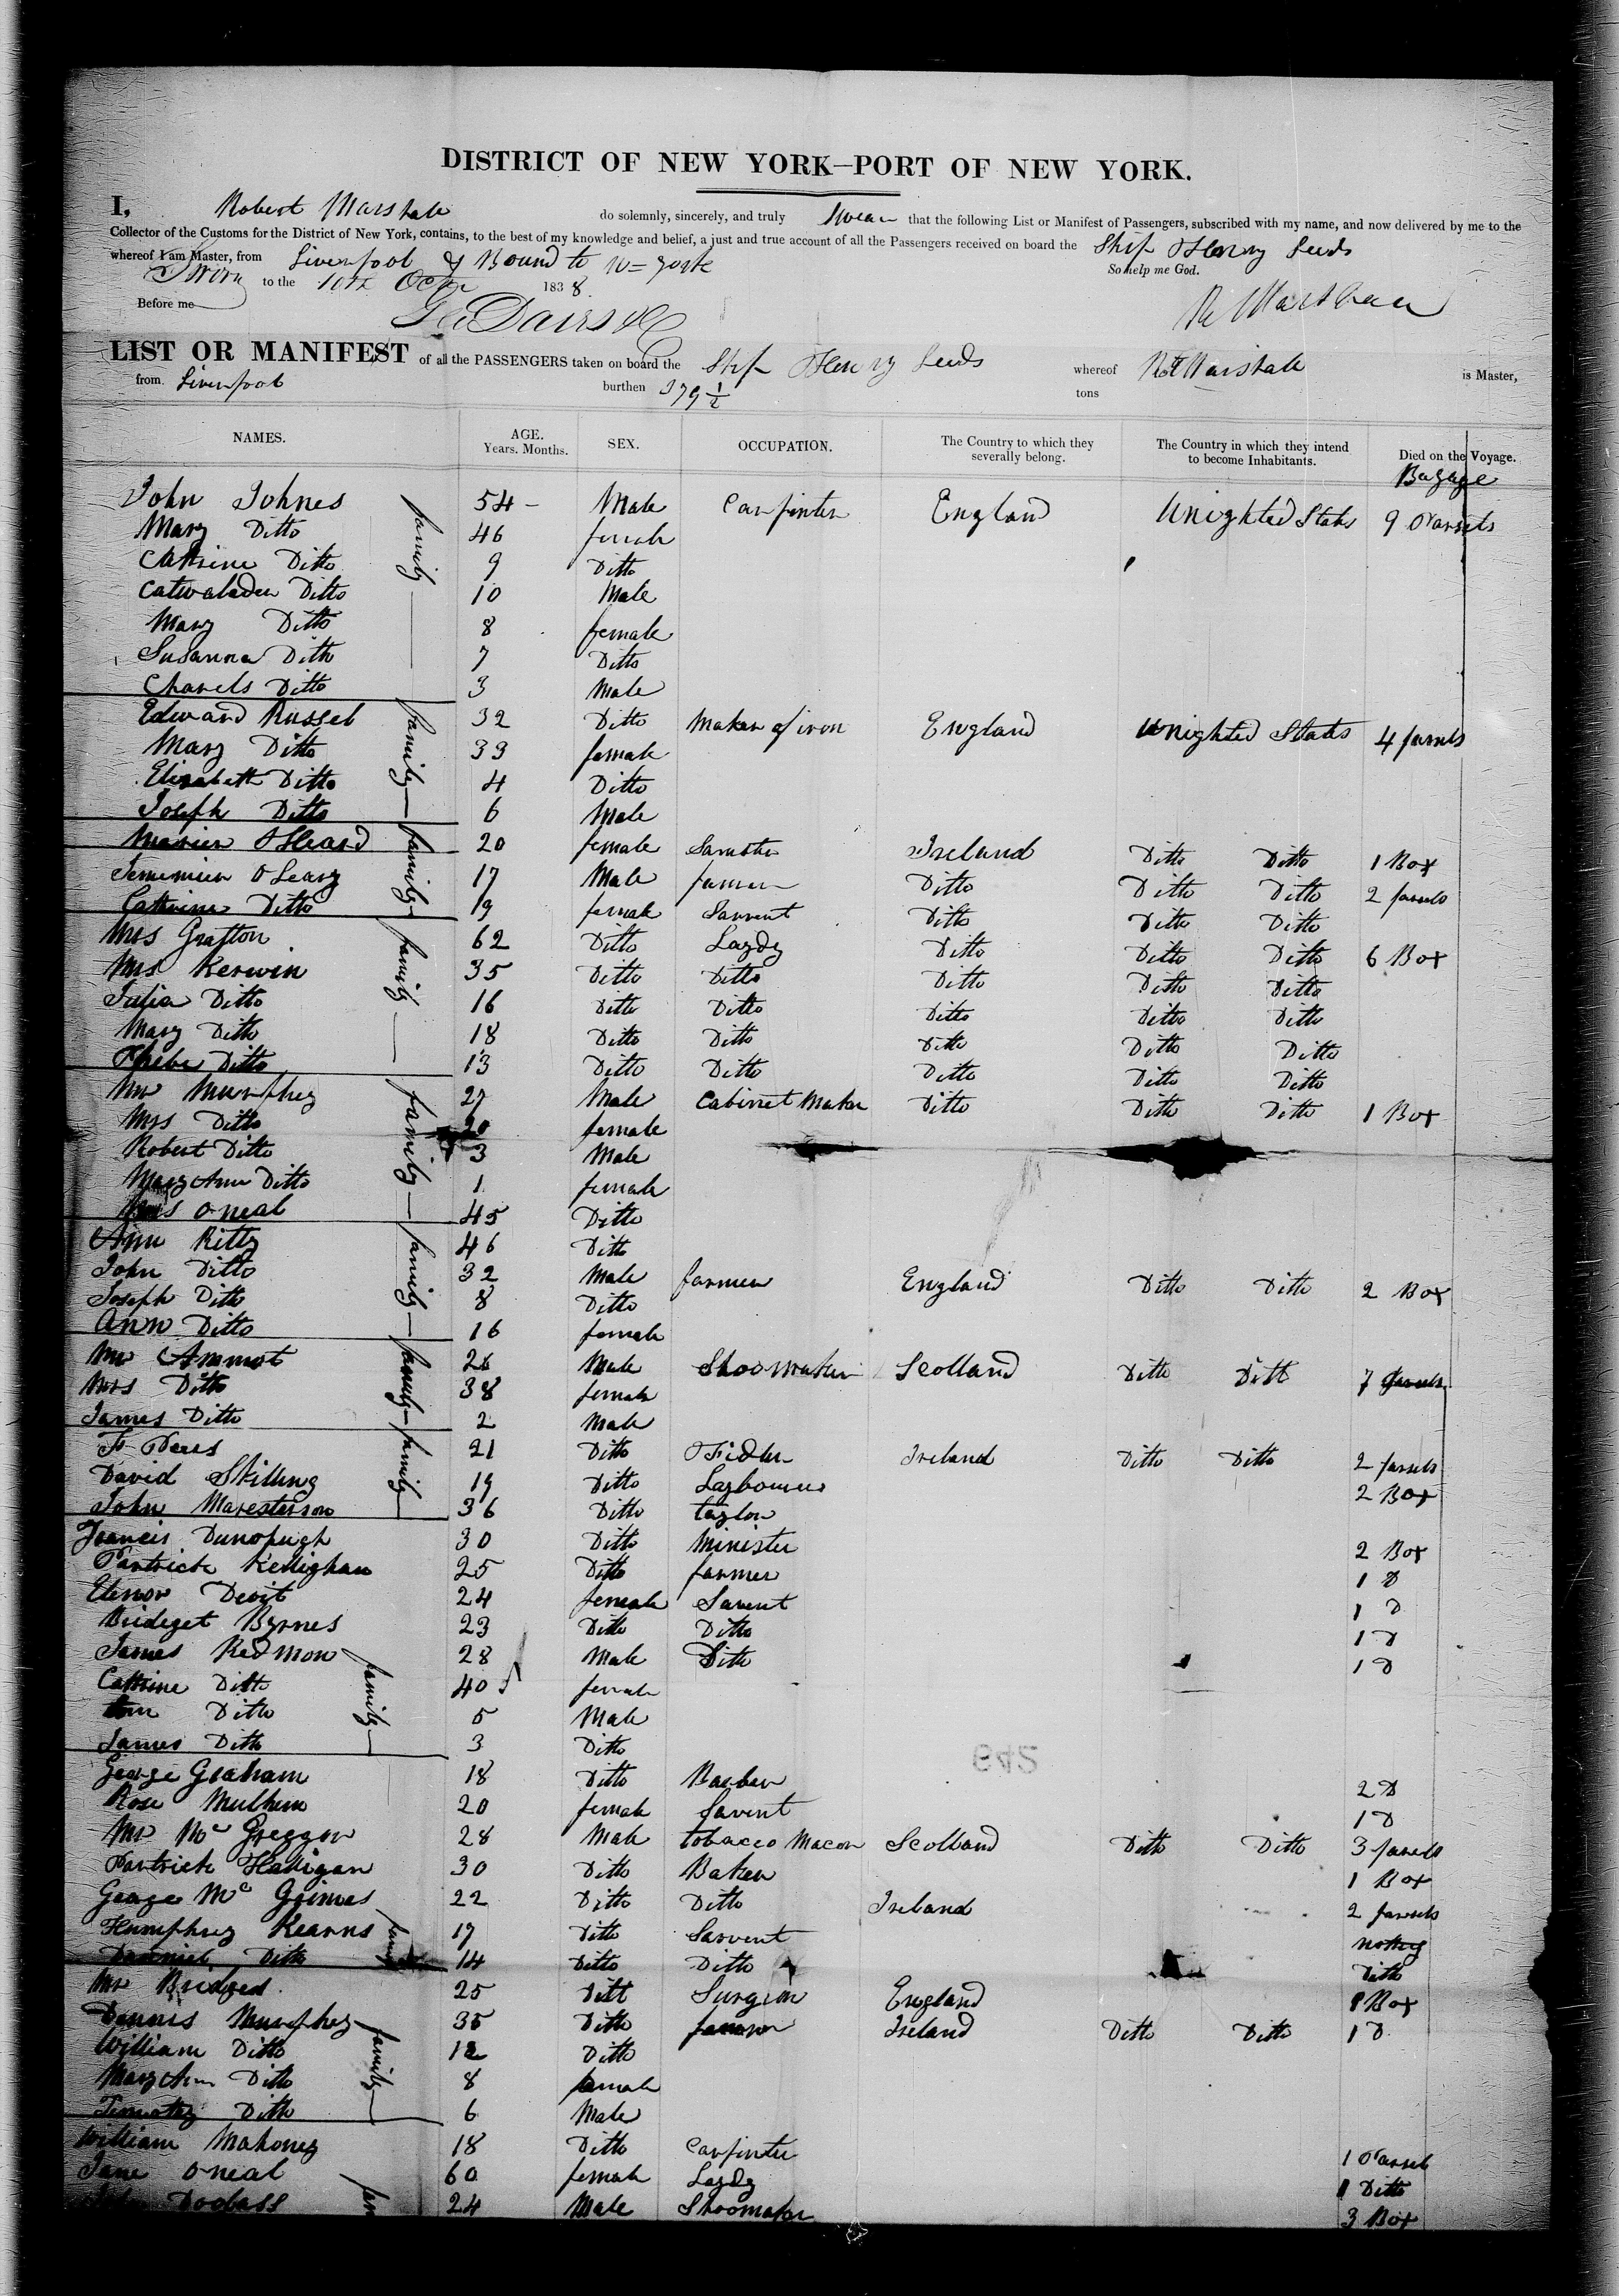 DISTRICT OF NEW YORK—PORT OF NEW YORK.
I, Robert Marshall do solemnly, sincerely, and truly Swear that the following List or Manifest of Passengers, subscribed with my name, and now delivered by me to the
Collector of the Customs for the District of New York, contains, to the best of my knowledge and belief, a just and true account of all the Passengers received on board the Ship Henry Leeds
whereof I am Master, from Liverpool & Bound to N= york
So help me God.
Sworn to the 10th Octr 1838.
Before me
LIST OR MANIFEST of all the PASSENGERS taken on board the Ship Henry Leeds whereof Rt Marshall is Master,
from Liverpool burthen 379 1/2 tons
NAMES. AGE. Years. Months. SEX. OCCUPATION. The Country to which they severally belong. The Country in which they intend to become Inhabitants. Died on the Voyage.
Bagage
John Johnes 54 - Male Carpinter England Unighted States 9 Parsels
Mary Ditto 46 female
Cattrine Ditto 9 Ditto
Catwalader Ditto 10 Male
Mary Ditto 8 female
Susanna Ditto 7 Ditto
Charels Ditto 3 Male
family
Edward Russel 32 Ditto Maker of iron England Unighted States 4 parsels
Mary Ditto 33 female
Elizabeth Ditto 4 Ditto
Joseph Ditto 6 Male
family
20 female Ireland Ditto Ditto 1 Box
O Leary 17 Male farmer Ditto Ditto Ditto 2 parsels
Cattrine Ditto 19 female Sarvent Ditto Ditto Ditto
family
Mrs Grafton 62 Ditto Laydy Ditto Ditto Ditto 6 Box
Mrs Kerwin 35 Ditto Ditto Ditto Ditto Ditto
Julia Ditto 16 Ditto Ditto Ditto Ditto Ditto
Mary Ditto 18 Ditto Ditto Ditto Ditto Ditto
Phebe Ditto 13 Ditto Ditto Ditto Ditto Ditto
family
Mr Murphey 27 Male Cabinet Maker Ditto Ditto Ditto 1 Box
Mrs Ditto 20 female
Robert Ditto 3 Male
Mary Ann Ditto 1 female
Mrs Oneal 45 Ditto
family
Ann Kitty 46 Ditto
John Ditto 32 Male farmer England Ditto Ditto 2 Box
Joseph Ditto 8 Ditto
Ann Ditto 16 female
family
Mr Ammot 26 Male Shoomaker Scolland Ditto Ditto 7 parsels
Mrs Ditto 38 female
James Ditto 2 Male
family
F Peers 21 Ditto Fidler Ireland Ditto Ditto 2 parsels
David Skilling 19 Ditto Laybourer 2 Box
John Maresterson 36 Ditto taylor
family
Francis Dunophugh 30 Ditto Minister 2 Box
Partrick Kellighan 25 Ditto farmer 1 D
Elenor Devit 24 female Sarvent 1 D
Brideget Byrnes 23 Ditto Ditto 1 D
James Redmon 28 Male Ditto 1 D
Cattrine Ditto 40 female
Ditto 5 Male
James Ditto 3 Ditto
family
George Graham 18 Ditto Barber 2 D
Rose Mulhern 20 female Sarvent 1 D
Mr Mc Greggor 28 Male tobacco Macor Scolland Ditto Ditto 3 parsels
Partrick Halligan 30 Ditto Baker 1 Box
George Mc Grimes 22 Ditto Ditto Ireland 2 parsels
Humphrey Kearns 17 Ditto Sarvent nothing
Danniel Ditto 14 Ditto Ditto Ditto
Mr Bridges 25 Ditt Surgion England 1 Box
Dennis Murphey 35 Ditto farmer Ireland Ditto Ditto 1 D
William Ditto 12 Ditto
Mary Ann Ditto 8 female
Timothy Ditto 6 Male
family
William Mahoney 18 Ditto Carpinter 1 Parsel
Jane Oneal 60 female Laydy 1 Ditto
Dodass 24 Male Shoomaker 3 Box